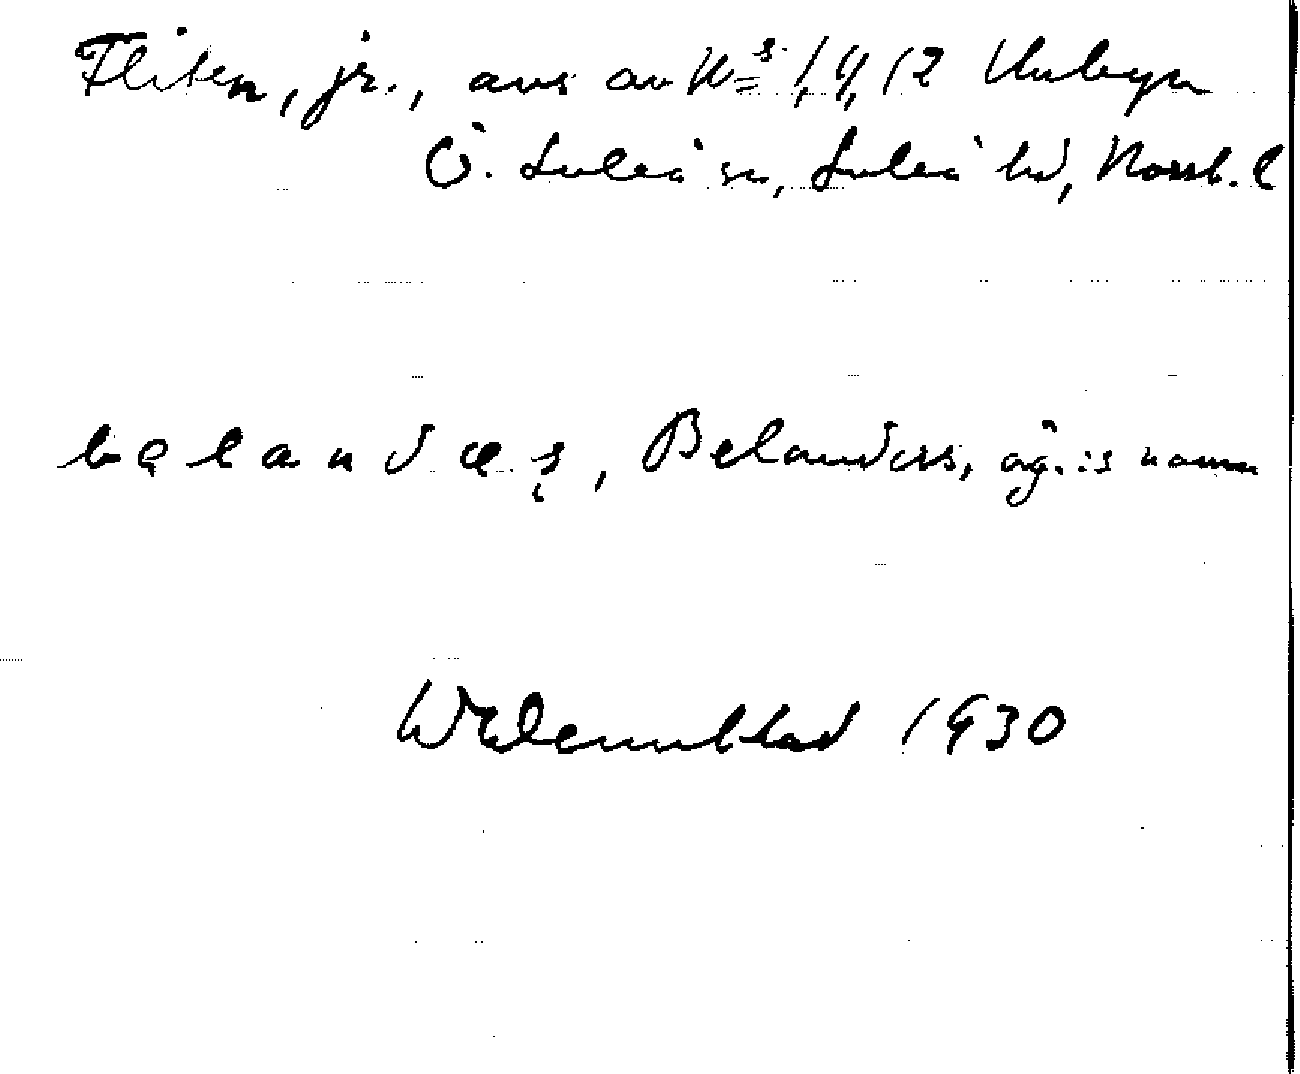 Fliten, jr., avs av Nº^s 1, 4, 12 Unbyn
Ö. Luleå sn, Luleå hd, Norrb. l
bęlandęs, Belanders, äg:is namn
Widemblad 1930